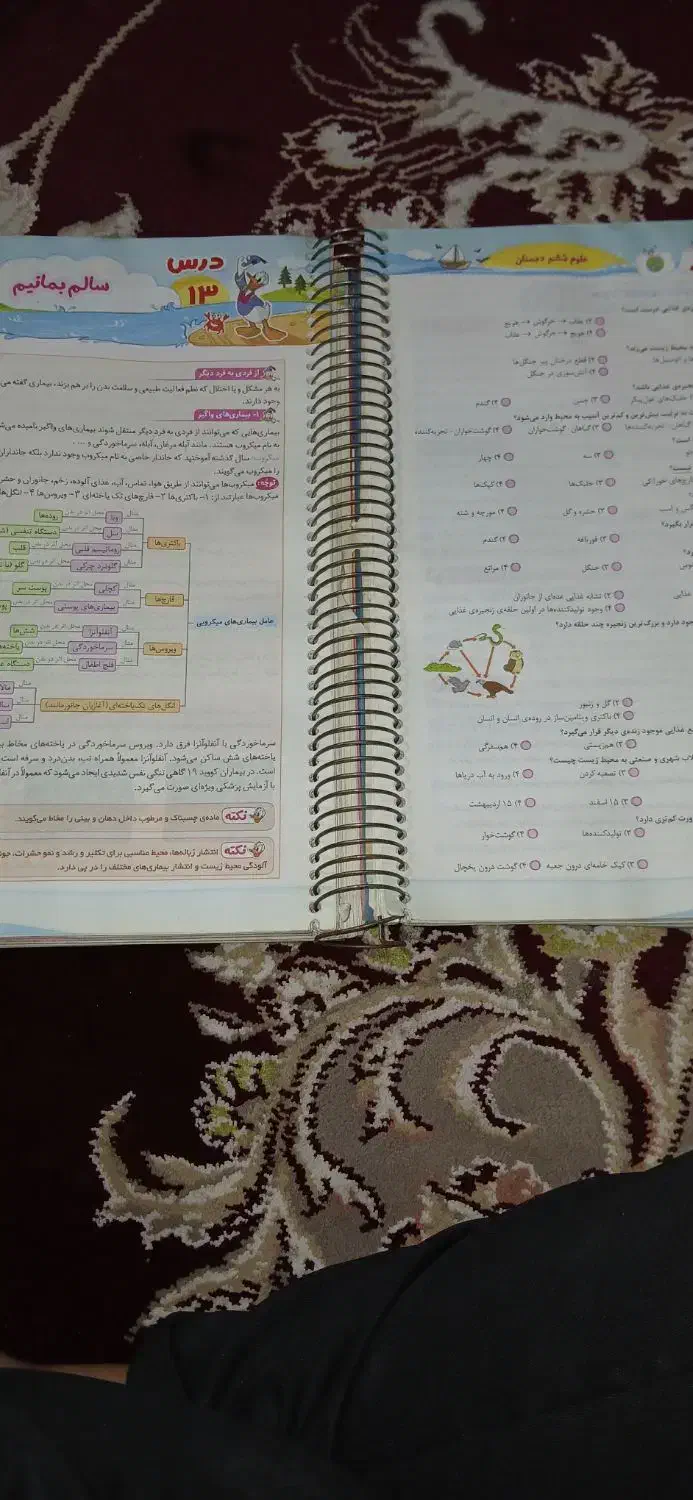 علوم ششم دبستان
ـه‌ی غذایی درست است؟
۲) عقاب → خرگوش → هویج
۴) هویج → خرگوش → عقاب
به محیط زیست می‌زند؟
۲) قطع درختان پیر جنگل‌ها
۴) آتش‌سوزی در جنگل
زنجیره‌ی غذایی باشد؟
۳) چمن
۴) گندم
به ترتیب بیش‌ترین و کم‌ترین آسیب به محیط وارد می‌شود؟
گیاهان - تجزیه‌کننده‌ها
۳) گیاهان - گوشت‌خواران
۴) گوشت‌خواران - تجزیه‌کننده
است؟
۳) سه
۴) چهار
۳) جلبک‌ها
۴) کپک‌ها
۳) حشره و گل
۴) مورچه و شته
قرار بگیرد؟
۳) قورباغه
۴) گندم
۳) جنگل
۴) مراتع
۲) تشابه غذایی عده‌ای از جانوران
۴) وجود تولیدکننده‌ها در اولین حلقه‌ی زنجیره‌ی غذایی
وجود دارد و بزرگ‌ترین زنجیره چند حلقه دارد؟
۲) گل و زنبور
۴) باکتری ویتامین‌ساز در روده‌ی انسان و انسان
غذایی موجود زنده‌ی دیگر قرار می‌گیرد؟
۳) هم‌زیستی
۴) هم‌سفرگی
شهری و صنعتی به محیط زیست چیست؟
۳) تصفیه کردن
۴) ورود به آب دریاها
۳) ۱۵ اسفند
۴) ۱۵ اردیبهشت
صورت کم‌تری دارد؟
۳) تولیدکننده‌ها
۴) گوشت‌خوار
۳) کیک خامه‌ای درون جعبه
۴) گوشت درون یخچال
درس
۱۳
سالم بمانیم
از فردی به فرد دیگر
به هر مشکل و یا اختلال که نظم فعالیت طبیعی و سلامت بدن را بر هم بزند، بیماری گفته می
وجود دارند.
۱- بیماری‌های واگیر
بیماری‌هایی که می‌توانند از فردی به فرد دیگر منتقل شوند بیماری‌های واگیر نامیده می
به نام میکروب هستند. مانند آبله مرغان، آبله، سرماخوردگی و ....
میکروب: سال گذشته آموختید که جاندار خاصی به نام میکروب وجود ندارد بلکه جانداران
را میکروب می‌گویند.
توجه: میکروب‌ها می‌توانند از طریق هوا، تماس، آب، غذای آلوده، زخم، جانوران و حشر
میکروب‌ها عبارتند از: ۱- باکتری‌ها ۲- قارچ‌های تک یاخته‌ای ۳- ویروس‌ها ۴- انگل‌ها
عامل بیماری‌های میکروبی
باکتری‌ها
مثال
وبا
محل اثر در بدن
روده‌ها
مثال
سل
محل اثر در بدن
دستگاه تنفسی
مثال
روماتیسم قلبی
محل اثر در بدن
قلب
مثال
گلودرد چرکی
محل اثر در بدن
گلو
قارچ‌ها
مثال
کچلی
محل اثر در بدن
پوست سر
مثال
بیماری‌های پوستی
محل اثر در بدن
ویروس‌ها
مثال
آنفلوآنزا
محل اثر در بدن
شش‌ها
مثال
سرماخوردگی
محل اثر در بدن
مثال
فلج اطفال
محل اثر در بدن
دستگاه
انگل‌های تک‌یاخته‌ای (آغازیان جانورمانند)
مثال
مثال
مثال
سرماخوردگی با آنفلوآنزا فرق دارد. ویروس سرماخوردگی در یاخته‌های مخاط
یاخته‌های شش ساکن می‌شود. آنفلوآنزا معمولاً همراه تب، بدن‌درد و سرفه است.
است. در بیماران کووید ۱۹ گاهی تنگی نفس شدیدی ایجاد می‌شود که معمولاً در
با آزمایش پزشکی ویژه‌ای صورت می‌گیرد.
نکته ماده‌ی چسبناک و مرطوب داخل دهان و بینی را مخاط می‌گویند.
نکته انتشار زباله‌ها، محیط مناسبی برای تکثیر و رشد و نمو حشرات،
آلودگی محیط زیست و انتشار بیماری‌های مختلف را در پی دارد.